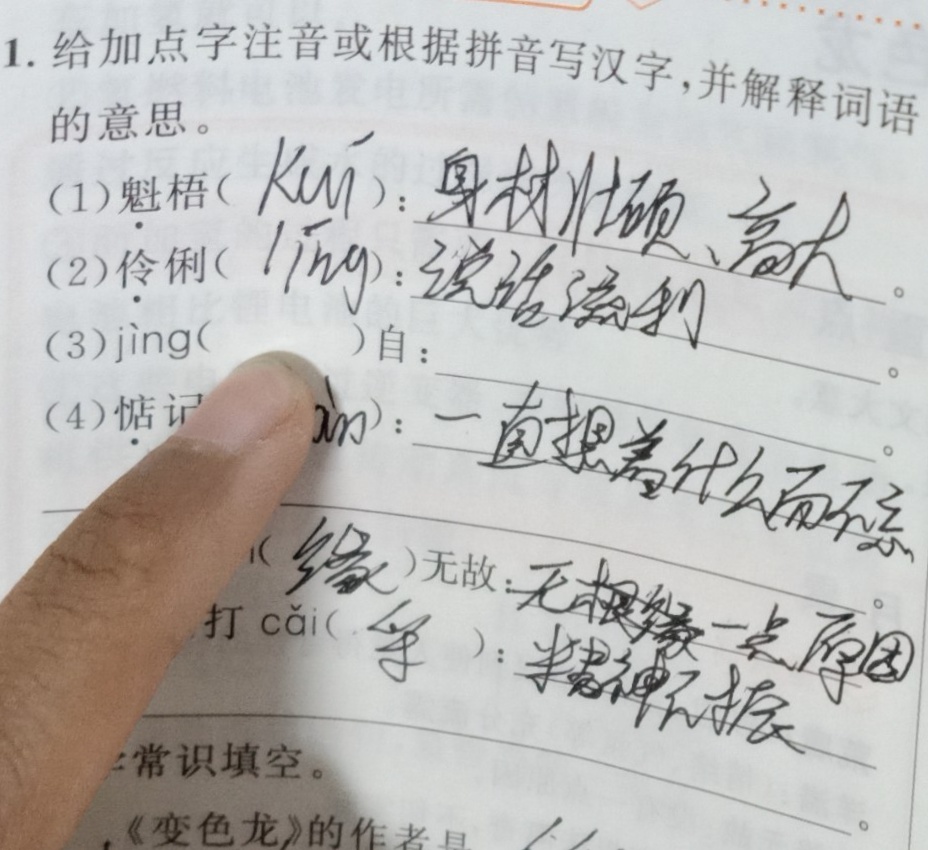 1. 给加点字注音或根据拼音写汉字,并解释词语
的意思。
(1)魁梧( kuí ): 身材壮硕、高大。
(2)伶俐( líng ): 说话流利。
(3)jìng( )自: 。
(4)惦记 ): 一直想着什么而不忘
( 缘 )无故: 无根缘一点原因。
打 cǎi( 采 ): 精神不振
。
常识填空。
,《变色龙》的作者是